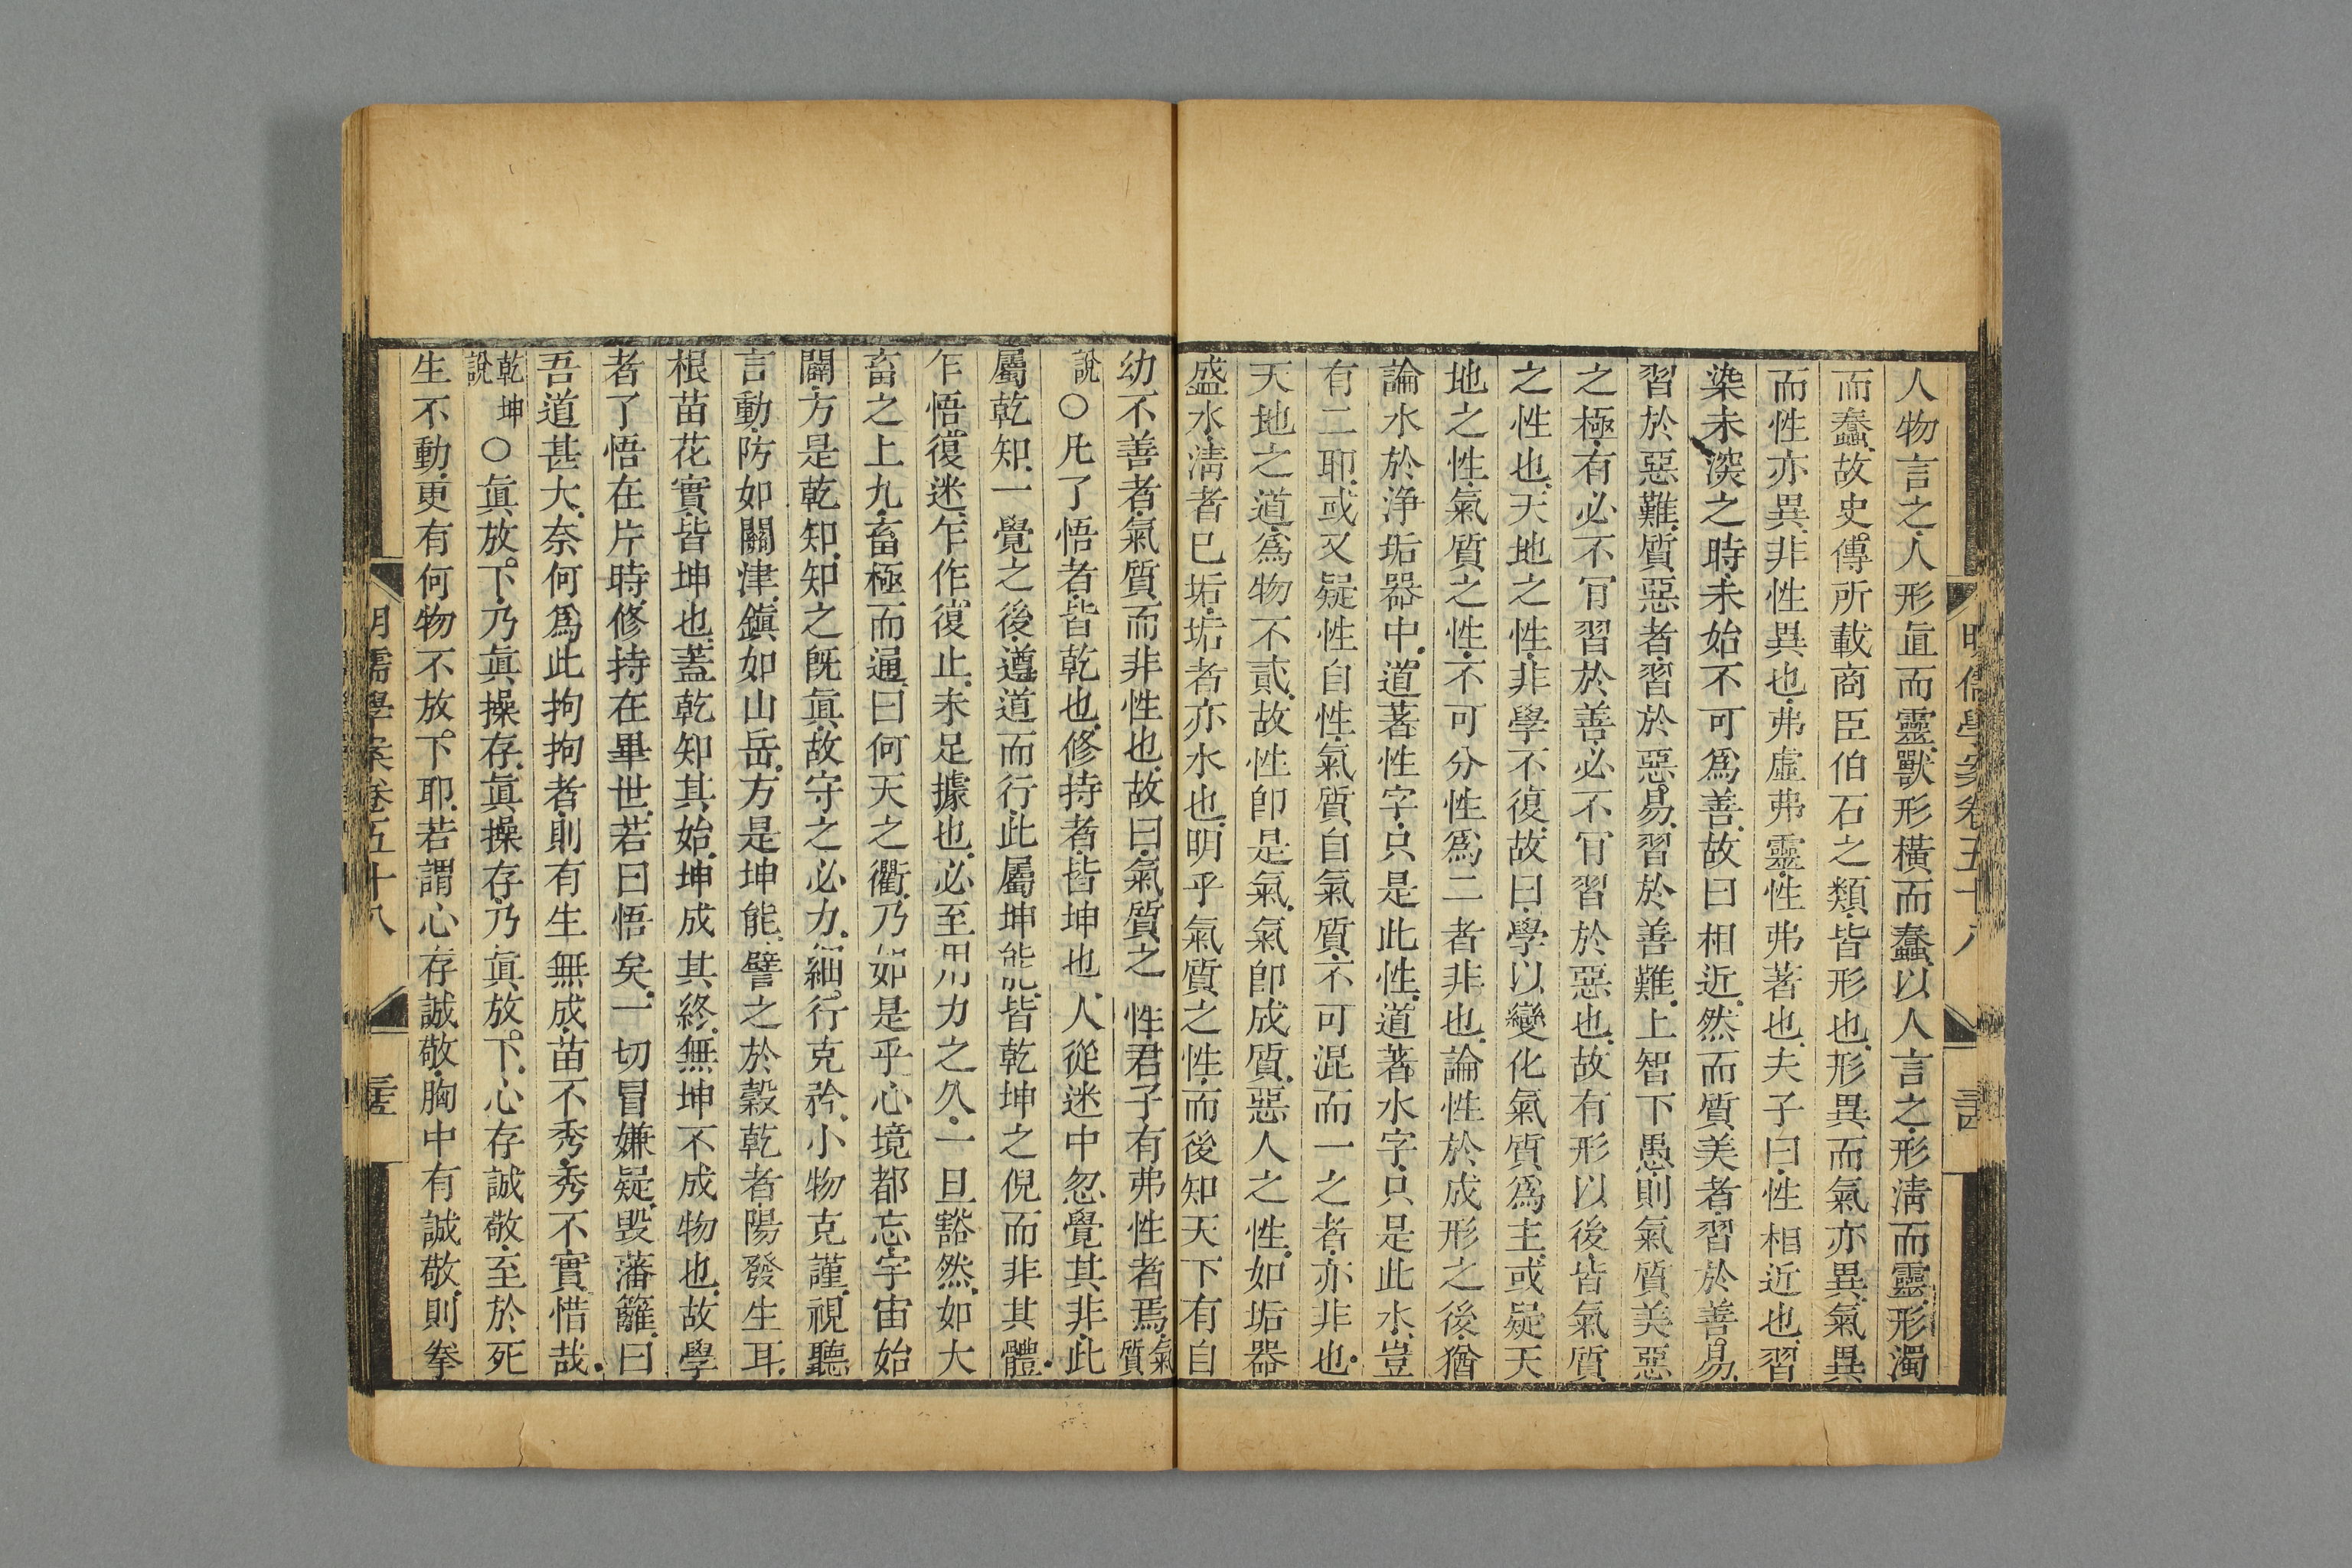 人物言之人形直而靈獸形橫而蠢以人言之形清而靈形濁
而蠢故史傳所載商臣伯石之類皆形也形異而氣亦異氣異
而性亦異非性異也弗虛弗靈性弗著也夫子曰性相近也習
染未深之時未始不可爲善故曰相近然而質美者習於善易
習於惡難質惡者習於惡易習於善難上智下愚則氣質美惡
之極有必不肎習於善必不肎習於惡也故有形以後皆氣質
之性也天地之性非學不復故曰學以變化氣質爲主或疑天
地之性氣質之性不可分性爲二者非也論性於成形之後猶
論水於淨垢器中道著性字只是此性道著水字只是此水豈
有二耶或又疑性自性氣質自氣質不可混而一之者亦非也
天地之道爲物不貳故性卽是氣氣卽成質惡人之性如垢器
盛水清者已垢垢者亦水也明乎氣質之性而後知天下有自
幼不善者氣質而非性也故曰氣質之性君子有弗性者焉氣質
說○凡了悟者皆乾也修持者皆坤也人從迷中忽覺其非此
屬乾知一覺之後遵道而行此屬坤能皆乾坤之倪而非其體
乍悟復迷乍作復止未足據也必至用力之久一旦豁然如大
畜之上九畜極而通曰何天之衢乃如是乎心境都忘宇宙始
闢方是乾知知之旣眞故守之必力細行克矜小物克謹視聽
言動防如關津鎭如山岳方是坤能譬之於穀乾者陽發生耳
根苗花實皆坤也蓋乾知其始坤成其終無坤不成物也故學
者了悟在片時修持在畢世若曰悟矣一切冒嫌疑毀藩籬曰
吾道甚大奈何爲此拘拘者則有生無成苗不秀秀不實惜哉
乾坤說○眞放下乃眞操存眞操存乃眞放下心存誠敬至於死
生不動更有何物不放下耶若謂心存誠敬胸中有誠敬則拳
明儒學案卷五十八